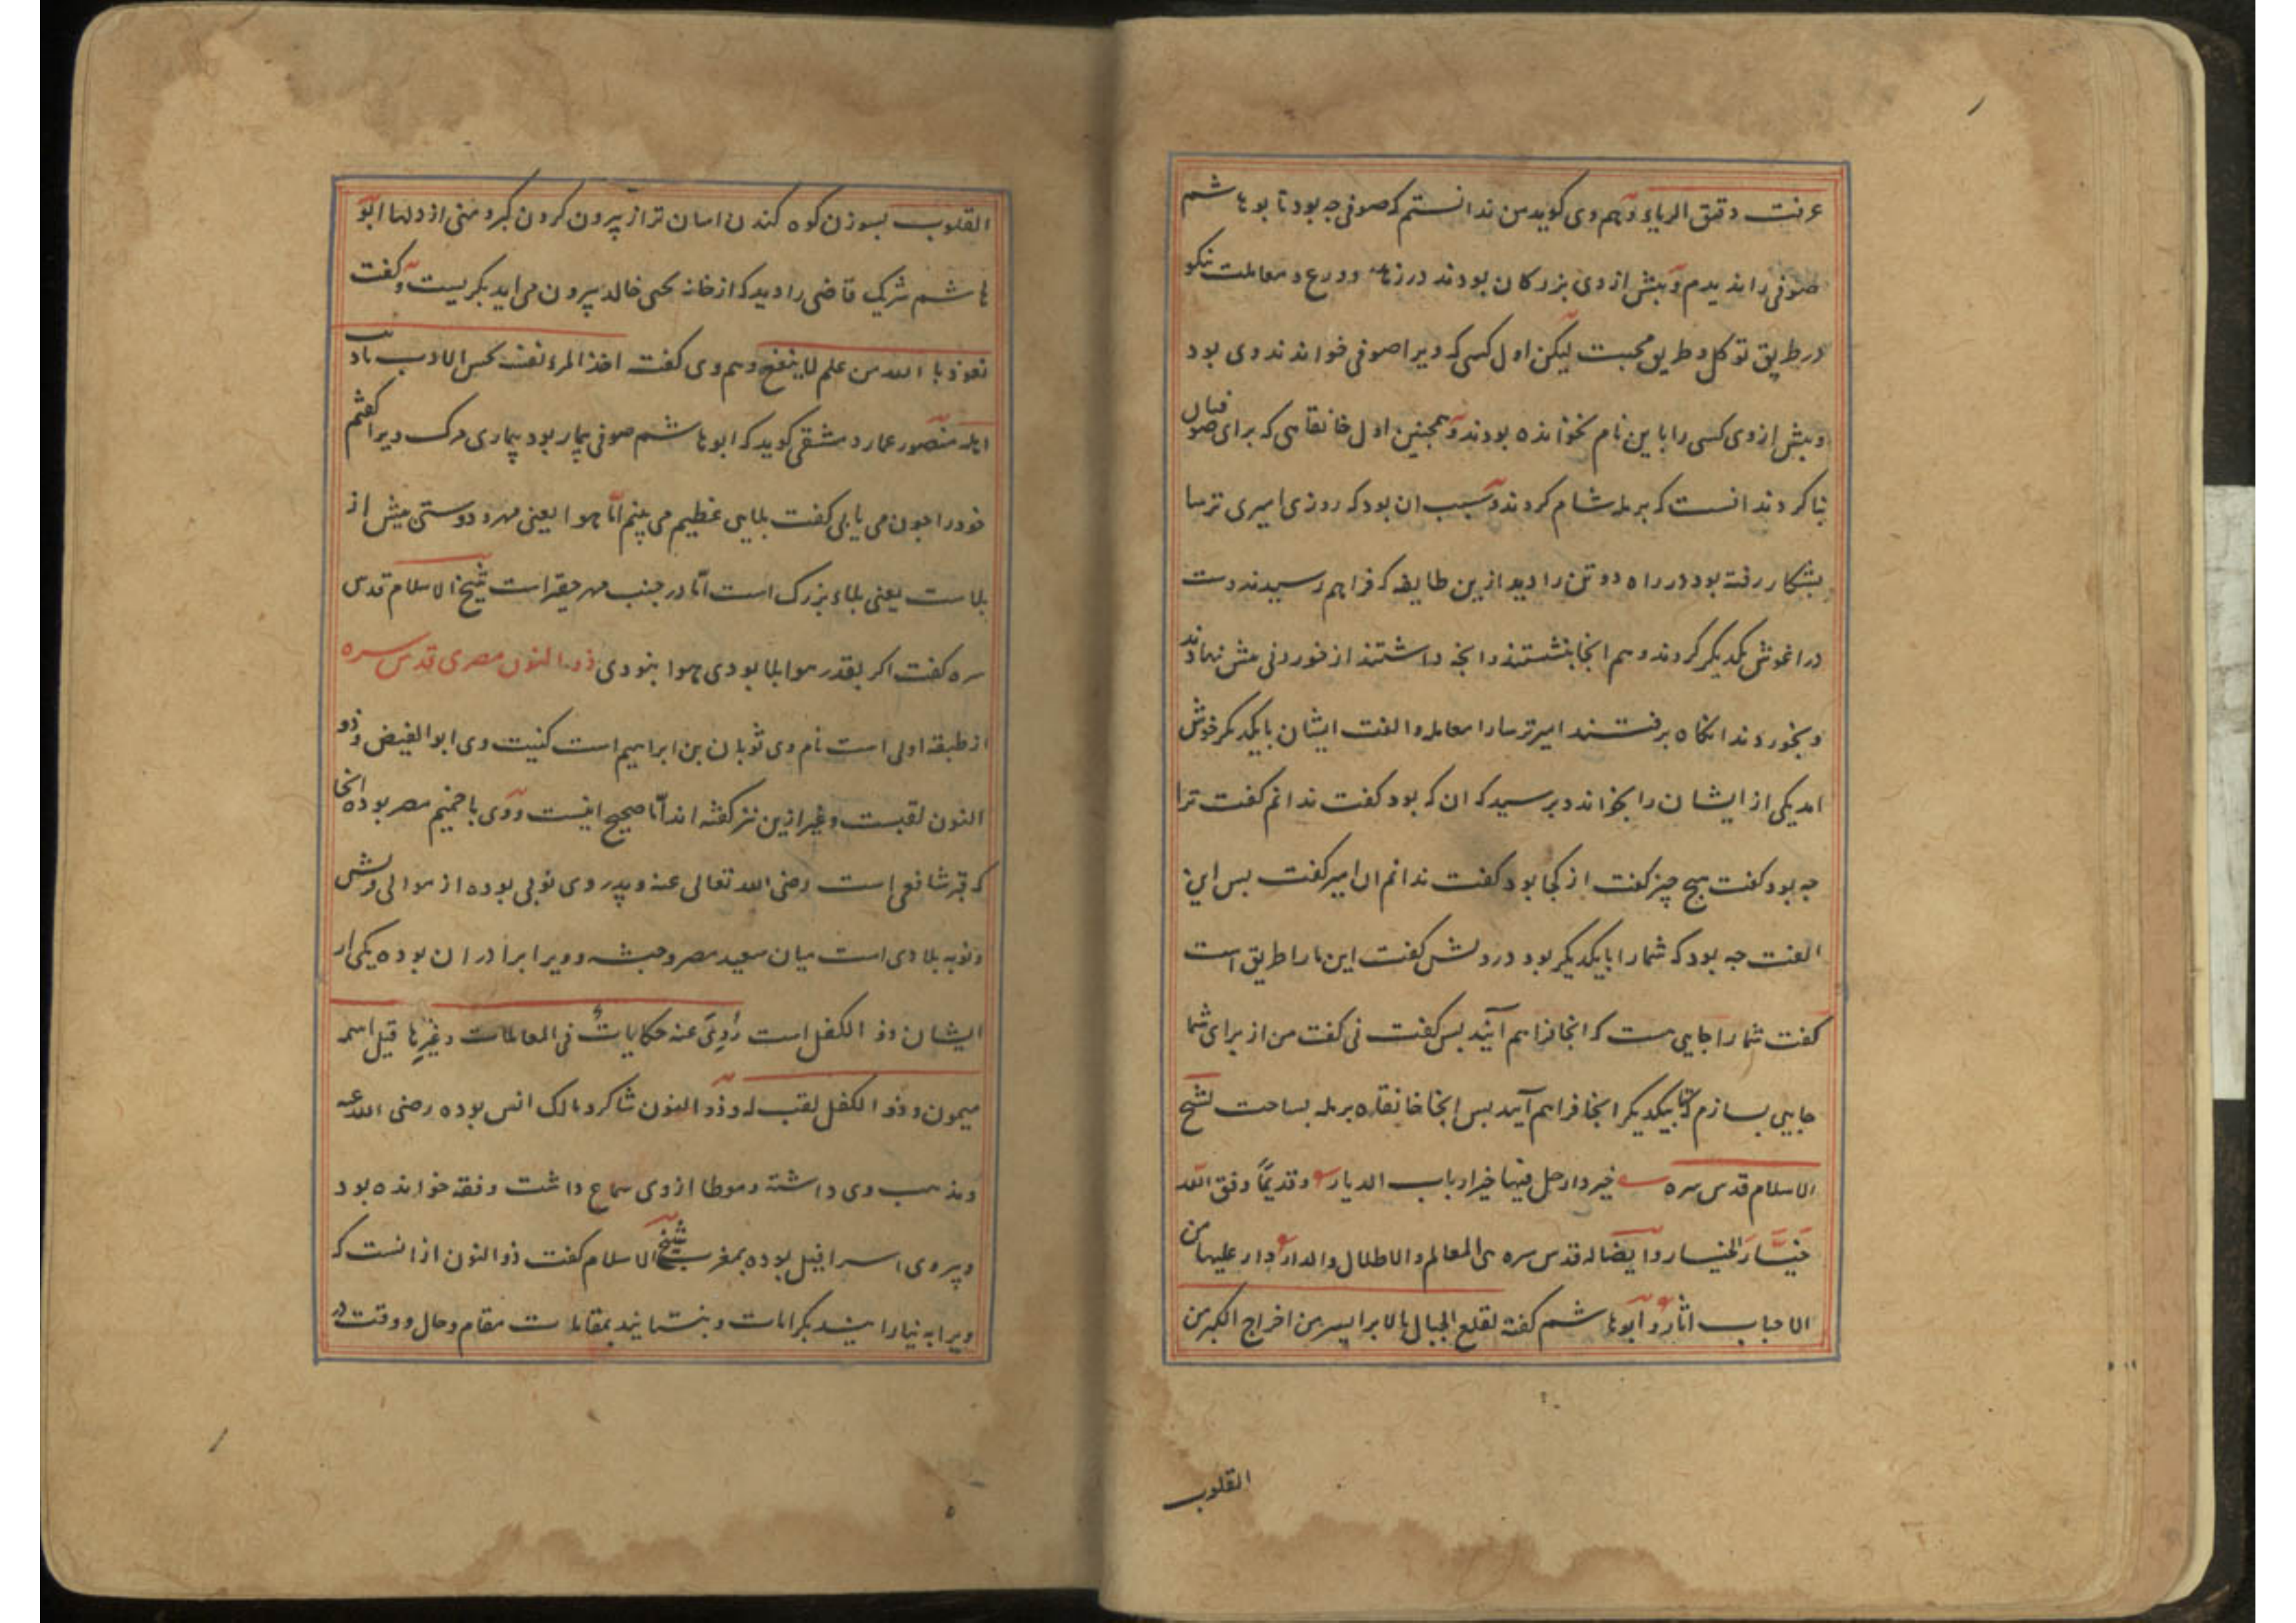 عرفت دقیق الریاء وهم وی کوید من ندانستم که صوفی جه بود تا بو هاشم
صوفی را ندیدم وبیش از وی بزرکان بودند در زهد وورع و معاملت نیکو
در طریق توکل و طریق محبت لیکن اول کسی که ویرا صوفی خواندند وی بود
وبیش از وی کسی را باین نام نخوانده بودند وهمجنین اول خانقاهی که برای صوفیان
بنا کردند انست که برمله شام کردند وسبب ان بود که روزی امیری ترسا
بشکار رفته بود در راه دو تن را دید ازین طایفه که فراهم رسیدند ودست
در اغوش یکدیکر کردند وهم انجا بنشستند وانجه داشتند از خوردنی بیش نهادند
وبخوردند انکاه برفتند امیر ترسا را معامله والفت ایشان با یکدیکر خوش
امد یکی از ایشان را بخواند وبرسید که ان که بود کفت ندانم کفت ترا
جه بود کفت هیج چیز کفت از کجا بود کفت ندانم ان امیر کفت بس این
الفت جه بود که شما را با یکدیکر بود درویش کفت این ما را طریق است
کفت شما را جایی هست که انجا فراهم آیند بس کفت نی کفت من از برای شما
جایی بسازم که تا بیکدیکر انجا فراهم آیید بس انجا خانقاه برمله بساخت لشیخ
الاسلام قدس سره خیر دار حل فیها خیر ارباب الدیار وقدیمًا وفق الله
خیَّار لخیار وایضا له قدس سره هی المعالم والاطلال والدار دار علیها من
الاحباب اثار وابو هاشم کفته لقلع الجبال بالابر ایسر من اخراج الکبر من
القلوب
القلوب بسوزن کوه کندن اسان تر از بیرون کردن کبر و منی از دلها ابو
هاشم شریک قاضی را دید که از خانه یحیی خالد بیرون می اید بکریست وکفت
نعوذ با الله من علم لا ینفع وهم وی کفت اخذ المرء نفسه بحسن الادب تادیب
اهله منصور عمار دمشقی کوید که ابو هاشم صوفی بیمار بود بیماری مرک ویرا کفتم
خود را جون می یابی کفت بلایی عظیم می بینم امّا هوا یعنی مهر و دوستی بیش از
بلاست یعنی بلاء بزرک است امّا در جنب مهر حقیر است شیخ الاسلام قدس
سره کفت اکر بقدر هوا بلا بودی هوا نبودی ذو النون مصری قدس سره
از طبقه اولی است نام وی ثوبان بن ابراهیم است کنیت وی ابو الفیض وذو
النون لقبست وغیر ازین نیز کفته اند امّا صحیح اینست ووی باخمیم مصر بوده انجا
که قبر شافعی است رضی الله تعالی عنه وپدر وی نوبی بوده از موالی قریش
ونوبه بلادی است میان سعید مصر وحبشه وویرا برادران بوده یکی از
ایشان ذو الکفل است رُوِیَ عنه حکایاتٌ فی المعاملات وغیرها قیل اسمه
میمون وذو الکفل لقب له وذو النون شاکرد مالک انس بوده رضی الله عنه
ومذهب وی داشته وموطا از وی سماع داشت وفقه خوانده بود
وپیر وی اسرافیل بوده بمغرب شیخ الاسلام کفت ذو النون از انست که
ویرا به نیارایند بکرامات وبنستایند بمقامات مقام وحال ووقت در